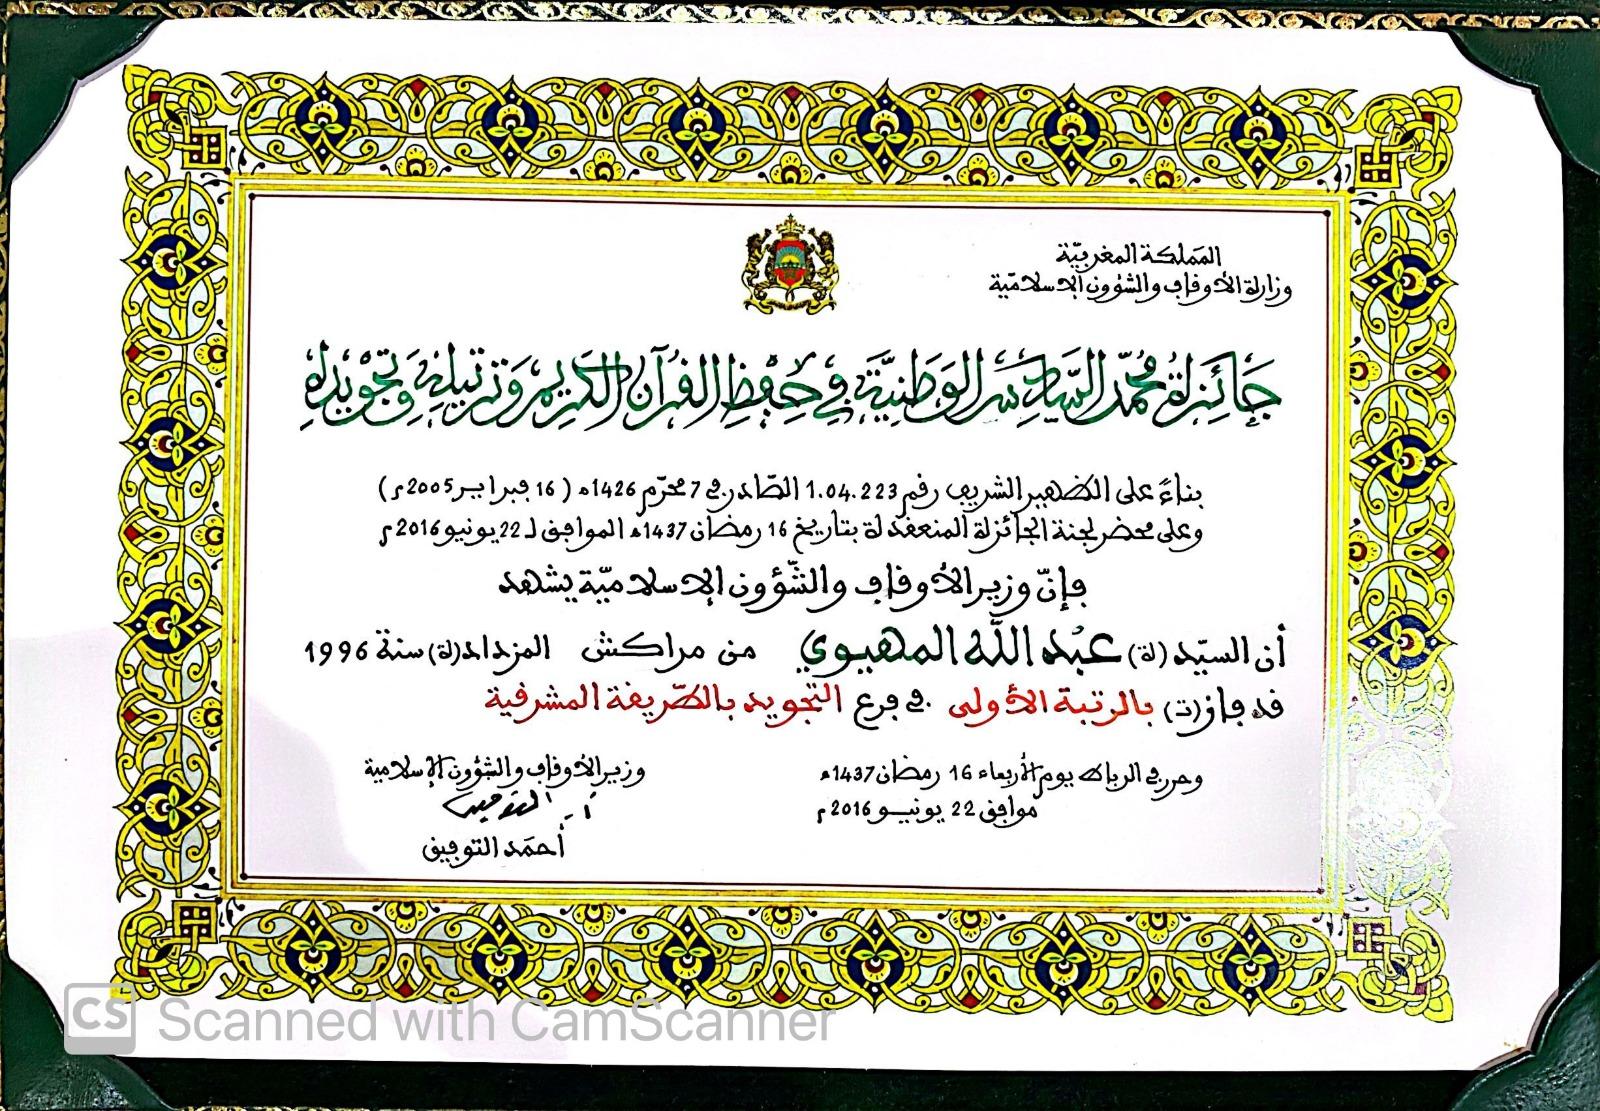 المملكة المغربيّة
وزارة الأوقاف والشؤون الإسلاميّة
جَائِزَةُ مُحَمَّد السَّادِسِ الوَطَنِيَّة فِي حِفْظِ القُرْآنِ الكَرِيمِ وَتَرْتِيلِهِ وَتَجْوِيدِهِ
بناءً على الظهير الشريف رقم 1.04.223 الصّادر في 7 محرّم 1426ه (16 فبراير 2005م)
وعلى محضر لجنة الجائزة المنعقدة بتاريخ 16 رمضان 1437ه الموافق لـ 22 يونيو 2016م
فإنّ وزير الأوقاف والشّؤون الإسلاميّة يشهد
أن السيّد(ة) عبْد اللّه المهيوي من مراكش المزداد(ة) سنة 1996
قد فاز(ت) بالرتبة الأولى في فرع التّجويد بالطّريقة المشرقية
وحرر في الرباط يوم الأربعاء 16 رمضان 1437ه
موافق 22 يونيو 2016م
وزير الأوقاف والشؤون الإسلامية
أحمَد التوفيق
CS Scanned with CamScanner